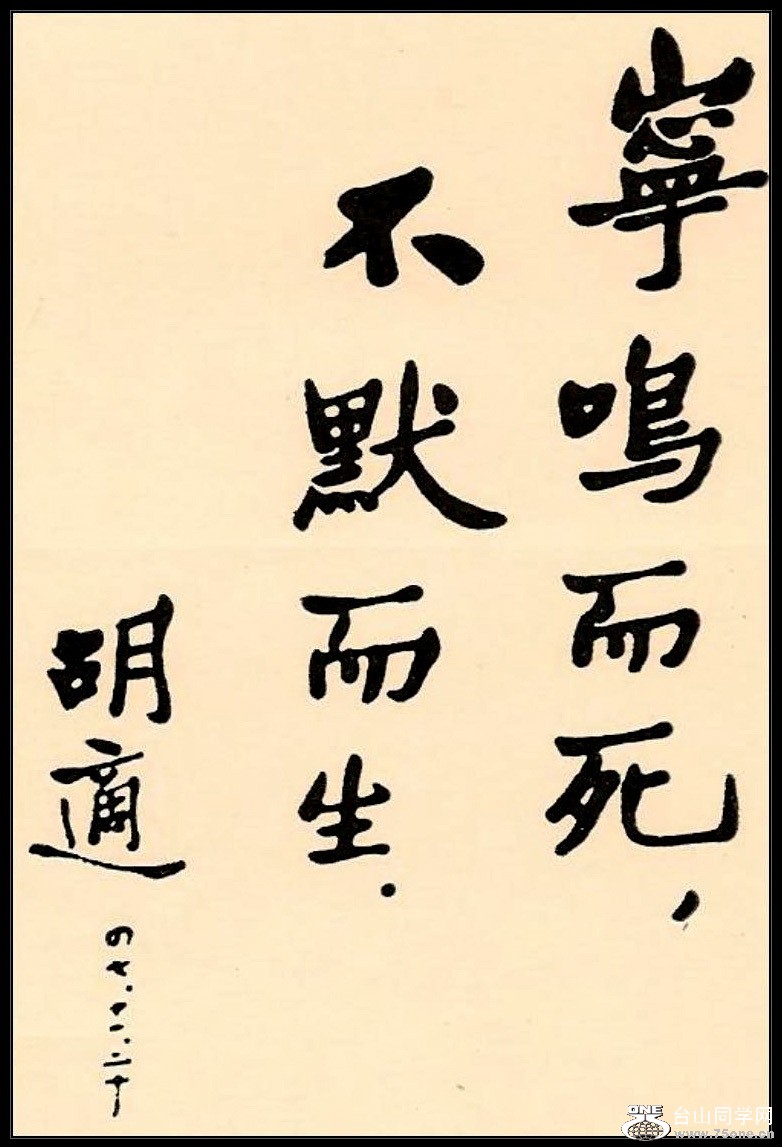 寧鳴而死，
不默而生．
胡適
四七．十二．二十
ONE
台山同学网
www.75one.cn